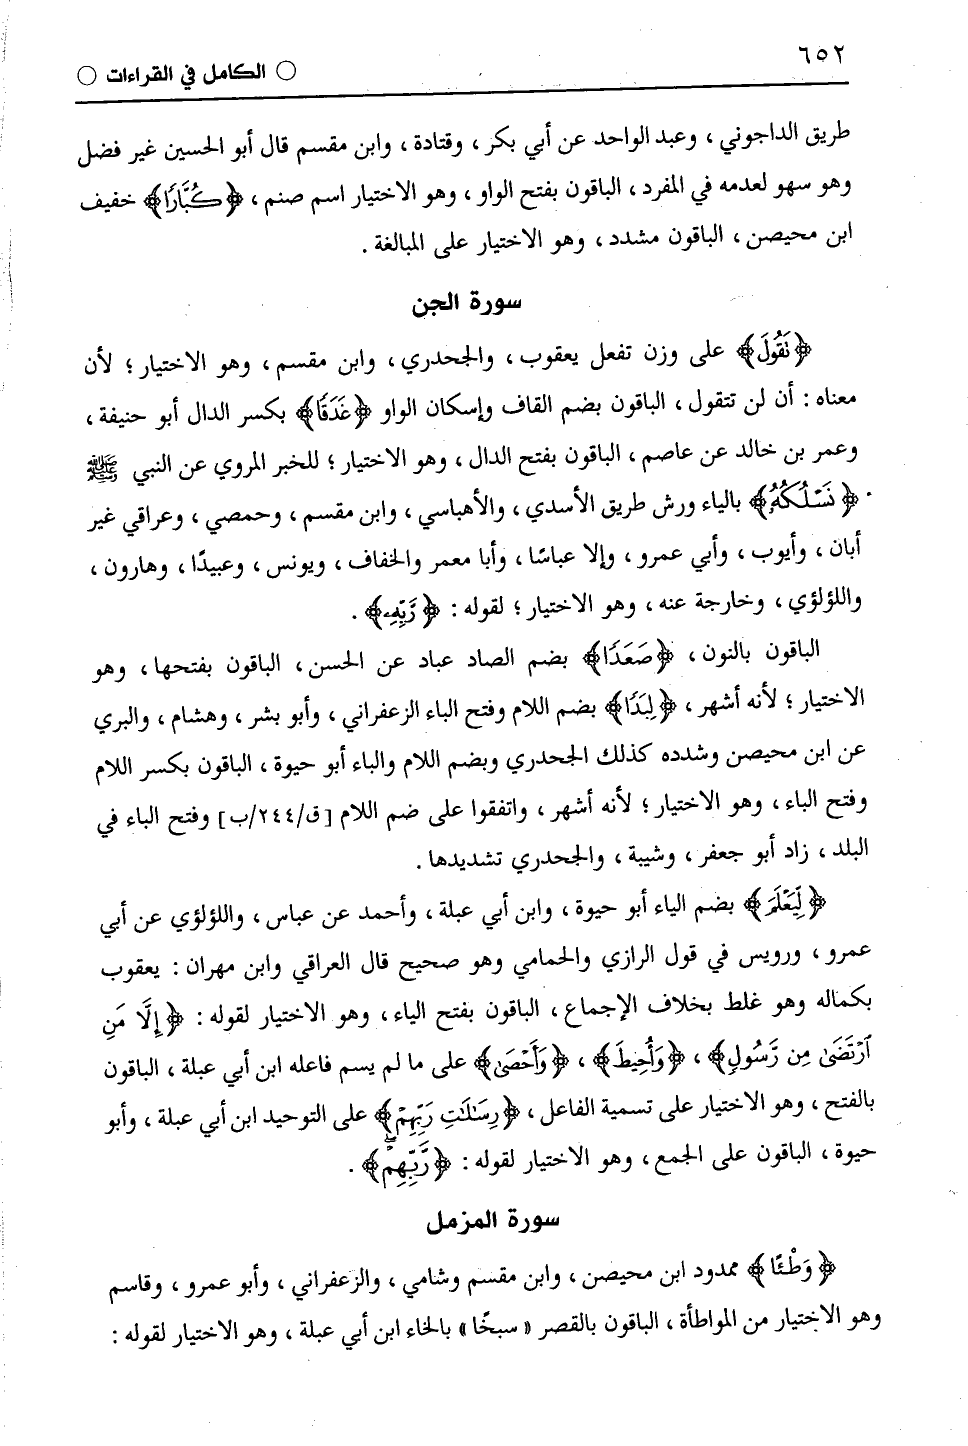 ٦٥٢
○ الكامل في القراءات ○
طريق الداجوني ، وعبد الواحد عن أبي بكر ، وقتادة ، وابن مقسم قال أبو الحسين غير فضل
وهو سهو لعدمه في المفرد ، الباقون بفتح الواو ، وهو الاختيار اسم صنم ، ﴿كُبَّارًا﴾ خفيف
ابن محيصن ، الباقون مشدد ، وهو الاختيار على المبالغة .
سورة الجن
﴿نَقُولَ﴾ على وزن تفعل يعقوب ، والجحدري ، وابن مقسم ، وهو الاختيار ؛ لأن
معناه : أن لن تتقول ، الباقون بضم القاف وإسكان الواو ﴿غَدَقًا﴾ بكسر الدال أبو حنيفة ،
وعمر بن خالد عن عاصم ، الباقون بفتح الدال ، وهو الاختيار ؛ للخبر المروي عن النبي ﷺ
. ﴿نَسْلُكْهُ﴾ بالياء ورش طريق الأسدي ، والأهباسي ، وابن مقسم ، وحمصي ، وعراقي غير
أبان ، وأيوب ، وأبي عمرو ، وإلا عباسًا ، وأبا معمر والخفاف ، ويونس ، وعبيدًا ، وهارون ،
واللؤلؤي ، وخارجة عنه ، وهو الاختيار ؛ لقوله : ﴿رَبِّهِۦ﴾ .
الباقون بالنون ، ﴿صَعَدًا﴾ بضم الصاد عباد عن الحسن ، الباقون بفتحها ، وهو
الاختيار ؛ لأنه أشهر ، ﴿لِبَدًا﴾ بضم اللام وفتح الباء الزعفراني ، وأبو بشر ، وهشام ، والبري
عن ابن محيصن وشدده كذلك الجحدري وبضم اللام والباء أبو حيوة ، الباقون بكسر اللام
وفتح الباء ، وهو الاختيار ؛ لأنه أشهر ، واتفقوا على ضم اللام [ق/٢٤٤/ب] وفتح الباء في
البلد ، زاد أبو جعفر ، وشيبة ، والجحدري تشديدها .
﴿لِّيَعْلَمَ﴾ بضم الياء أبو حيوة ، وابن أبي عبلة ، وأحمد عن عباس ، واللؤلؤي عن أبي
عمرو ، ورويس في قول الرازي والحمامي وهو صحيح قال العراقي وابن مهران : يعقوب
بكماله وهو غلط بخلاف الإجماع ، الباقون بفتح الياء ، وهو الاختيار لقوله : ﴿إِلَّا مَنِ
ٱرْتَضَىٰ مِن رَّسُولٍ﴾ ، ﴿وَأُحِيطَ﴾ ، ﴿وَأَحْصَىٰ﴾ على ما لم يسم فاعله ابن أبي عبلة ، الباقون
بالفتح ، وهو الاختيار على تسمية الفاعل ، ﴿رِسَٰلَٰتِ رَبِّهِمْ﴾ على التوحيد ابن أبي عبلة ، وأبو
حيوة ، الباقون على الجمع ، وهو الاختيار لقوله : ﴿رَّبِّهِمْ﴾ .
سورة المزمل
﴿وَطْـًٔا﴾ ممدود ابن محيصن ، وابن مقسم وشامي ، والزعفراني ، وأبو عمرو ، وقاسم
وهو الاختيار من المواطأة ، الباقون بالقصر « سبخًا » بالخاء ابن أبي عبلة ، وهو الاختيار لقوله :